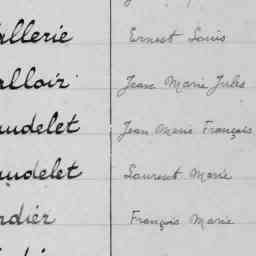 allerie Ernest Louis
alloir Jean Marie Jules
audelet Jean Marie François
audelet Laurent Marie
rdier François Marie